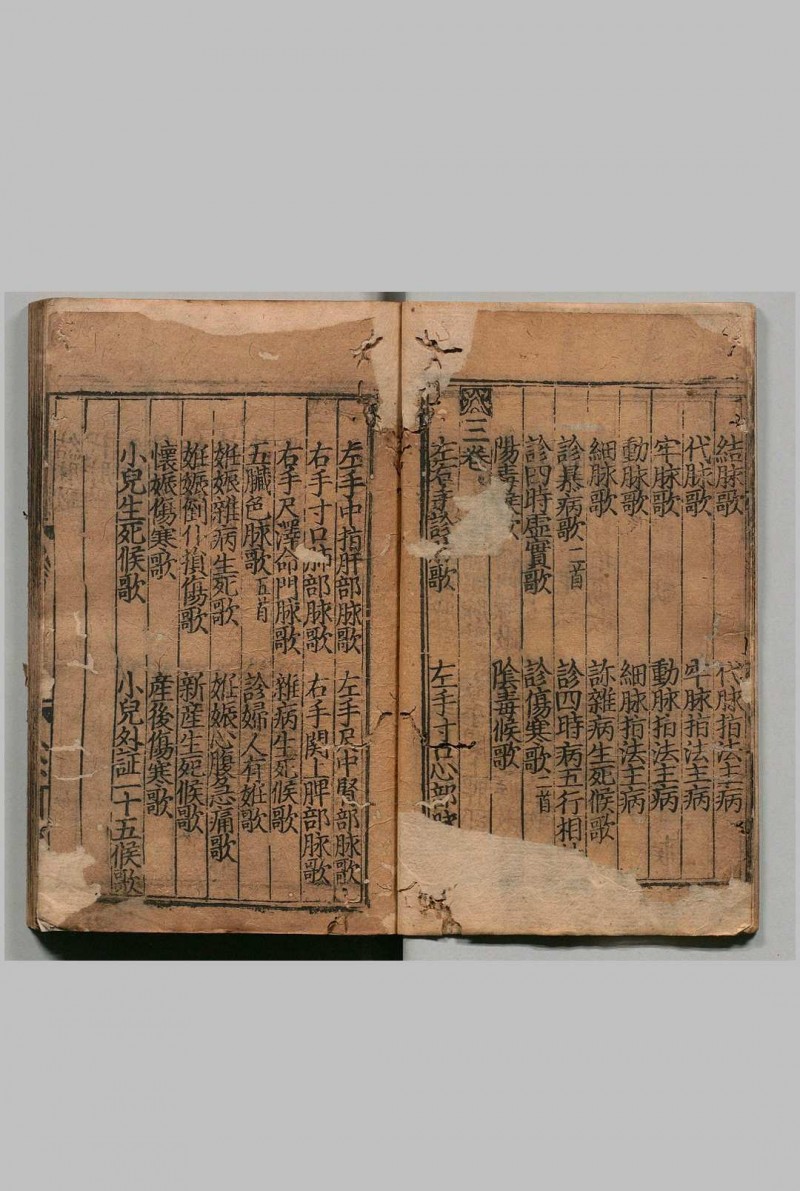 結脉歌 代脉指法主病
代脉歌 牢脉指法主病
牢脉歌 動脉指法主病
動脉歌 細脉指法主病
細脉歌 訴雜病生死候歌
診暴病歌二首 診四時病五行相
診四時虛實歌 診傷寒歌二首
陽毒候歌 陰毒候歌
三卷
左右手診 歌 左手寸口心部脉
左手中指肝部脉歌 左手尺中腎部脉歌
右手寸口肺部脉歌 右手関上脾部脉歌
右手尺澤命門脉歌 雜病生死候歌
五臟色脉歌五首 診婦人有妊歌
妊娠雜病生死歌 妊娠心腹急痛歌
妊娠倒仆損傷歌 新産生死候歌
懷娠傷寒歌 産後傷寒歌
小兒生死候歌 小兒外証一十五候歌